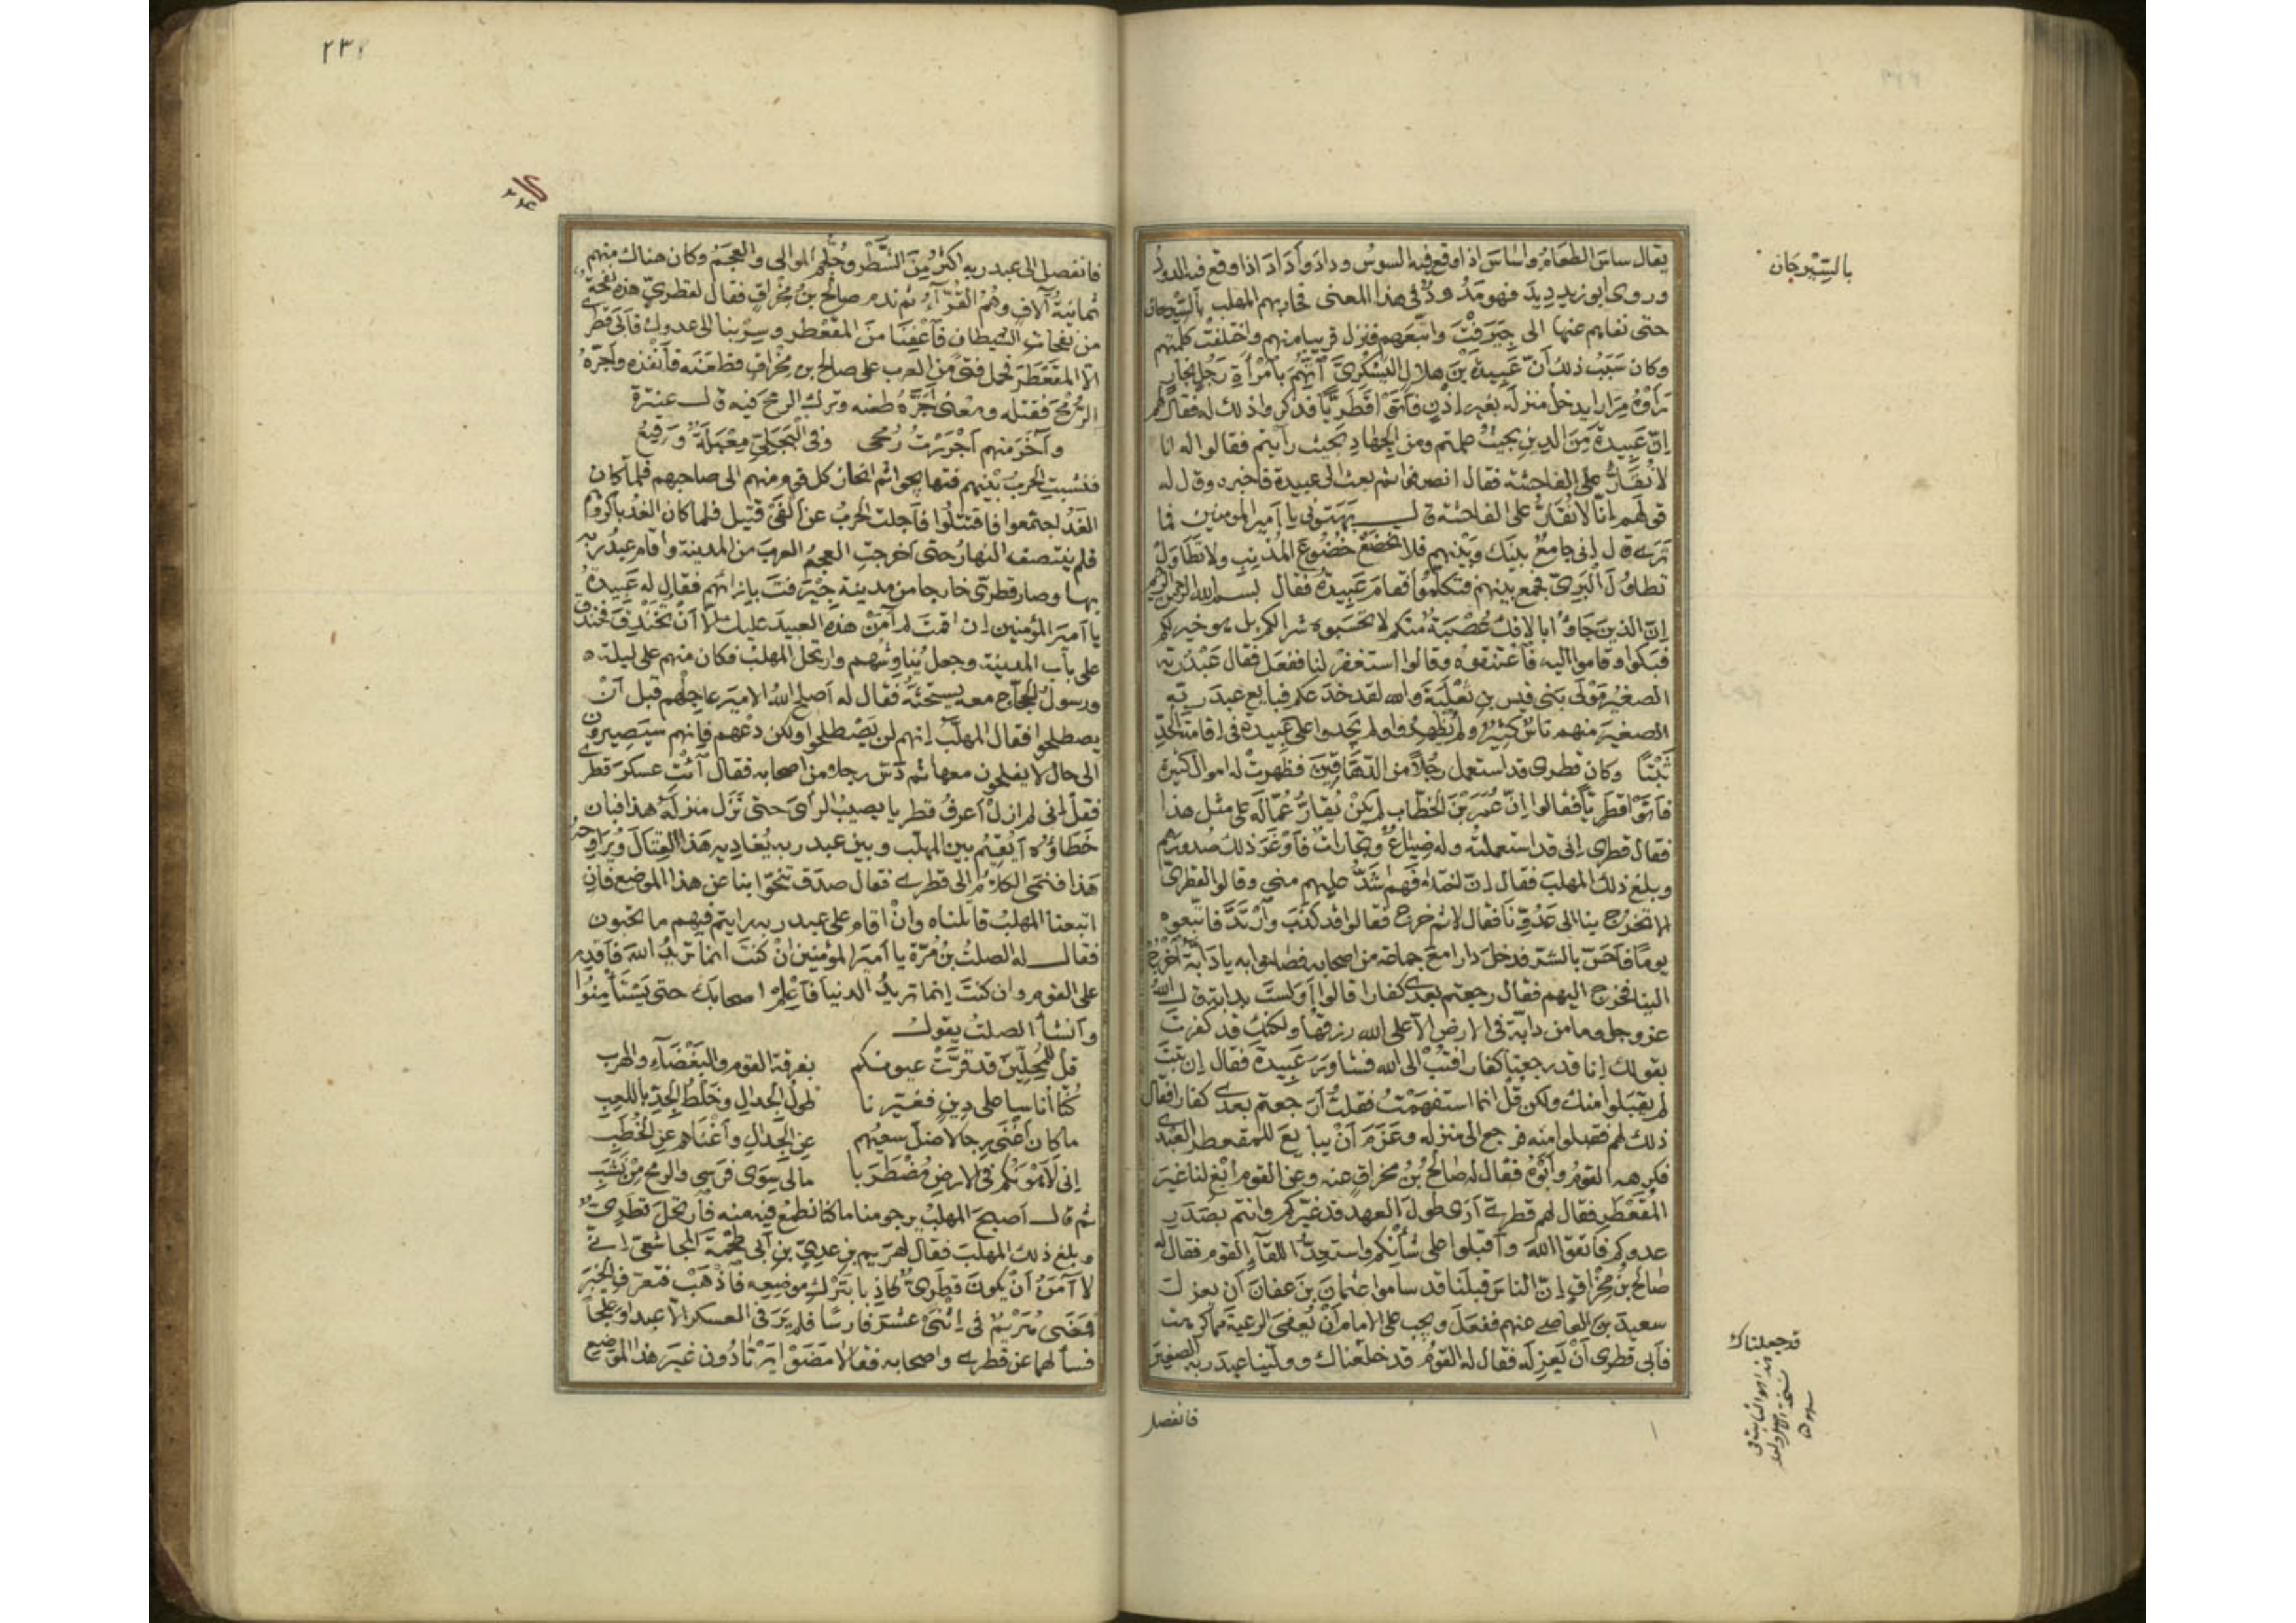 يقال ساسَ الطعامُ واَسَاسَ اذا وقع فيه السوسُ ودادَ وأَدَادَ اذا وقع فيه الدودُ
وروى ابو زيد دِيدَ فهو مَدُودٌ في هذا المعنى فحاربهم المهلب بالسِّيرجان
حتى نفاهم عنها الى جِيَرفْتَ واتبعَهم فنزل قريبا منهم واختلفت كلمتهم
وكان سَبَبُ ذلك أنّ عَبِيدةَ بْنَ هلالٍ اليَشْكُريَّ اتُّهِمَ بامْرَأَةِ رَجُلٍ نجّارٍ
رَأَوْهُ مِرَارا يدخل منزلَه بغير اِذْنٍ فأَتَوْا قَطَرِيّاً فذكروا ذلك له فقال لهم
اِنّ عَبِيدةَ مِنَ الدينِ بحيثُ علمتم ومن الجِهَادِ بحيث رأيتم فقالوا له انا
لا نُقَارُّ على الفاحشة فقال انصرفوا ثم بعث الى عبيدة فاخبره وقال له
قولَهم اِنّا لا نُقَارُّ على الفاحشة قال بَهَتوني يا اَمير المومنين فما
تَرَى قال اِنى جامعٌ بينك وبَيْنهم فلا تخضعْ خُضُوعَ المُذْنِبِ ولا تَطَاوَلْ
تطاوُلَ البَرِيّ فجمع بينهم فتكلّموا فقامَ عَبِيدةُ فقال بسم الله الرحمن الرحيم
اِنّ الذينَ جَاؤُا بالاِفكِ عُصْبَةٌ منكم لا تحْسَبوه شرا لكم بل هو خير لكم
فبَكَوا وقاموا اليه فاعْتنقوُه وقالوا استغفرْ لنا ففعَل فقال عَبْدُ ربّه
الصغيرُ مَوْلَى بَنى قيس بنِ ثَعْلَبَةَ والله لقد خدَعكم فبايع عبدَ ربّه
الصغيرَ منهم ناسٌ كثيرٌ ولم يُظهِرُوا ولم يَجدوا على عَبِيدةَ فى اِقامة الحدِّ
ثَبْتاً وكان قطرى قد استعمل رَجُلاً من الدّهَاقِينَ فظهرتْ له اموال كثيرة
فأتَوْا قطَرِيّاً فقالوا اِنّ عُمَرَ بْنَ الخطّابِ لم يكنْ يُقارُّ عُمّالَه على مثل هذا
فقال قطرى اِنى قد استعملتُه وله ضِيَاعٌ وتجاراتٌ فأَوْغَرَ ذلك صُدورَهم
وبلغ ذلك المهلبَ فقال اِنّ اختلافهم اشَدُّ عليهم منى وقالوا لقطرى
اَلا تخرُج بنا الى عَدُوّنا فقال لا ثم خرج فقالوا قد كذبَ وارْتَدَّ فاتّبعوه
يومًا فأحَسّ بالشرّ فدخل دارا معَ جماعة من اصحابه فصاحوا به يا دابّةُ اخرُجْ
الينا فخرج اليهم فقال رجعتم بعدى كفارا قالوا أَوَلستَ بدابة قال اللهُ
عز وجل وما من دابّة فى الارض الا على الله رزقها ولكنك قد كفرتَ
بقولك اِنا قد رجعنا كفارا فتُبْ الى الله فشاوَرَ عَبِيدةَ فقال اِن تُبتَ
لم يقبَلوا منك ولكن قُلْ انما استفهَمْتُ فقلتُ أرَجعتم بعدى كفارا فقال
ذلك لهم فقبلوا منه فرجع الى منزله وعَزَمَ اَنْ يبايعَ للمقعطر العَبْدىّ
فكرهه القومُ وأبَوْهُ فقال له صالحُ بْنُ مخراقٍ عنه وعن القوم ابْغِ لنا غيرَ
المُقَعْطَرِ فقال لهم قطرى أرَى طولَ العهد قد غيّركم وانتم بصَدَدِ
عدوكم فاتقوا اللهَ واَقبِلوا على شأْنكم واستعِدّوا للقاءِ القوم فقال له
صالح بْنُ مِخْرَاقٍ اِنّ الناسَ قبلَنا قد ساموا عثمانَ بنَ عفانَ اَن يعزل
سعيدَ بن العاصى عنهم ففعَلَ ويجب على الامام اَنْ يُعفىَ الرعيةَ مما كرهت
فأبى قطرى اَنْ يَعزِلَه فقال له القومُ قد خلعناك وولّينا عبدَ ربّه الصغيرَ
بالسِّيْرجَان
قد جعلناك
فانفصل
٢٣٢
فانفصل الى عبد ربه اكثرُ مِنَ الشَّطْرِ وجُلُّهمُ الموالى والعجمُ وكان هناك منهم
ثمانيةُ آلافٍ وهُمُ القُرّآءُ ثم ندم صالحُ بنُ مِخْراقٍ فقال لقطرىٍّ هذه نفحةٌ
من نفحات الشيطان فأعْفِنَا منَ المقَعْطَر وسِرْ بنا الى عدوك فأبَى قطرى
الا المقَعْطَرَ فحمل فتًى من العرب على صالح بن مِخْراقٍ فطعَنَه فأنفذه واَجَرّهُ
الرُّمْحَ فقتله ومعنى اَجَرَّهُ طعنه وترك الرمح فيه قال عنترة
وآخَرَ منهم اَجْرَرْتُ رُمحى وفى البَجَلِيّ مِعْبَلَةٌ وَقِيعُ
فنشِبتِ الحربُ بَيْنهم فتهايجوا ثم انحازَ كل قوم منهم الى صاحبهم فلما كان
الغَدُ اجتمعوا فاقتتلُوا فأجلتِ الحربُ عن اَلفَىْ قتيل فلما كان الغدُ باكروهم
فلم ينتصف النهارُ حتى اَخرجتِ العجمُ العربَ من المدينة واقام عبدُ ربّه
بها وصار قطرىّ خارجا من مدينة جِيْرَفتَ باِزائهم فقال له عَبِيدةُ
يا اَميرَ المؤمنين اِن اقمتَ لم آمَنْ هذه العبيدَ عليك الا اَنْ تُخَنْدِقَ فخندق
على باب المدينة وجعل يُناوِشُهم وارتحل المهلبُ فكان منهم على ليلة
ورسولُ الحجّاج معه يستحثّهُ فقال له اَصلح اللهُ الاميرَ عاجِلْهم قبل اَنْ
يصطلحوا فقال المهلّبُ اِنهم لن يَصْطلحوا ولكن دَعْهم فاِنهم سيَصِيرون
الى حال لا يفلحون معها ثم دَسّ رجلا من اصحابه فقال ائْتِ عسكرَ قطرى
فقلْ اِنى لم ازلْ اَعرفُ قطريا يصيبُ الرأىَ حتى نَزَل منزلَه هذا فبان
خَطَاؤُه أيُقيمُ بين المهلّب وبين عبد ربه يُغاديه هذا القِتالَ ويُراوحه
هَذا فنَمَى الكلامُ الى قطرى فقال صدَق تنحّوا بنا عن هذا الموضع فاِنِ
اتبعنا المهلبُ قاتلناه واِنْ اقام على عبد ربه رايتم فيهم ما تحبون
فقال له الصلتُ بْنُ مُرّةَ يا اَميرَ المؤمنين اِنْ كنتَ انما تريدُ اللهَ فاَقدِم
على القوم وان كنتَ اِنما تريدُ الدنيا فأعْلِمْ اصحابَك حتى يَسْتَأْمِنُوا
واَنشأ الصلتُ يقول
قُلْ لِلْمُحِلّينَ قد قرَّتْ عيونكم بفرقة القومِ والبَغْضَآءِ والهربِ
كُنّا اُناسا على دينٍ فغيّرنا طولُ الجدالِ وخَلطُ الجِدّ باللعِبِ
ما كان اَغْنَى رِجالا ضَلّ سعيُهم عنِ الجِدالِ واَغْنَاهم عن الخُطَبِ
اِنى لَاَهْوَنُكم فى الارض مُضْطَرَبا مالى سِوَى فَرَسِى والرمحِ مِنْ نَشَبِ
ثم قال اَصبحَ المهلبُ يرجو منا ما كنا نطمعُ فيه منه فارتحلَ قَطَرِىٌّ
وبلغ ذلك المهلبَ فقال لهُرَيم بنِ عدِىّ بنِ اَبى طحْمةَ المجاشعىّ اِنى
لا آمَنُ اَنْ يكونَ قطَرىٌّ كاذِبا بتَرْكِ موضعِه فاذهَبْ فتعرفِ الخبرَ
فمَضَى هُرَيْمٌ فى اِثْنَىْ عَشَرَ فارسًا فلم يَرَ فى العسكر الاّ عبدا وعِلجاً
فسألهما عن قطرى واصحابه فقالا مَضَوْا يَرْتادُون غيرَ هذا الموضِع